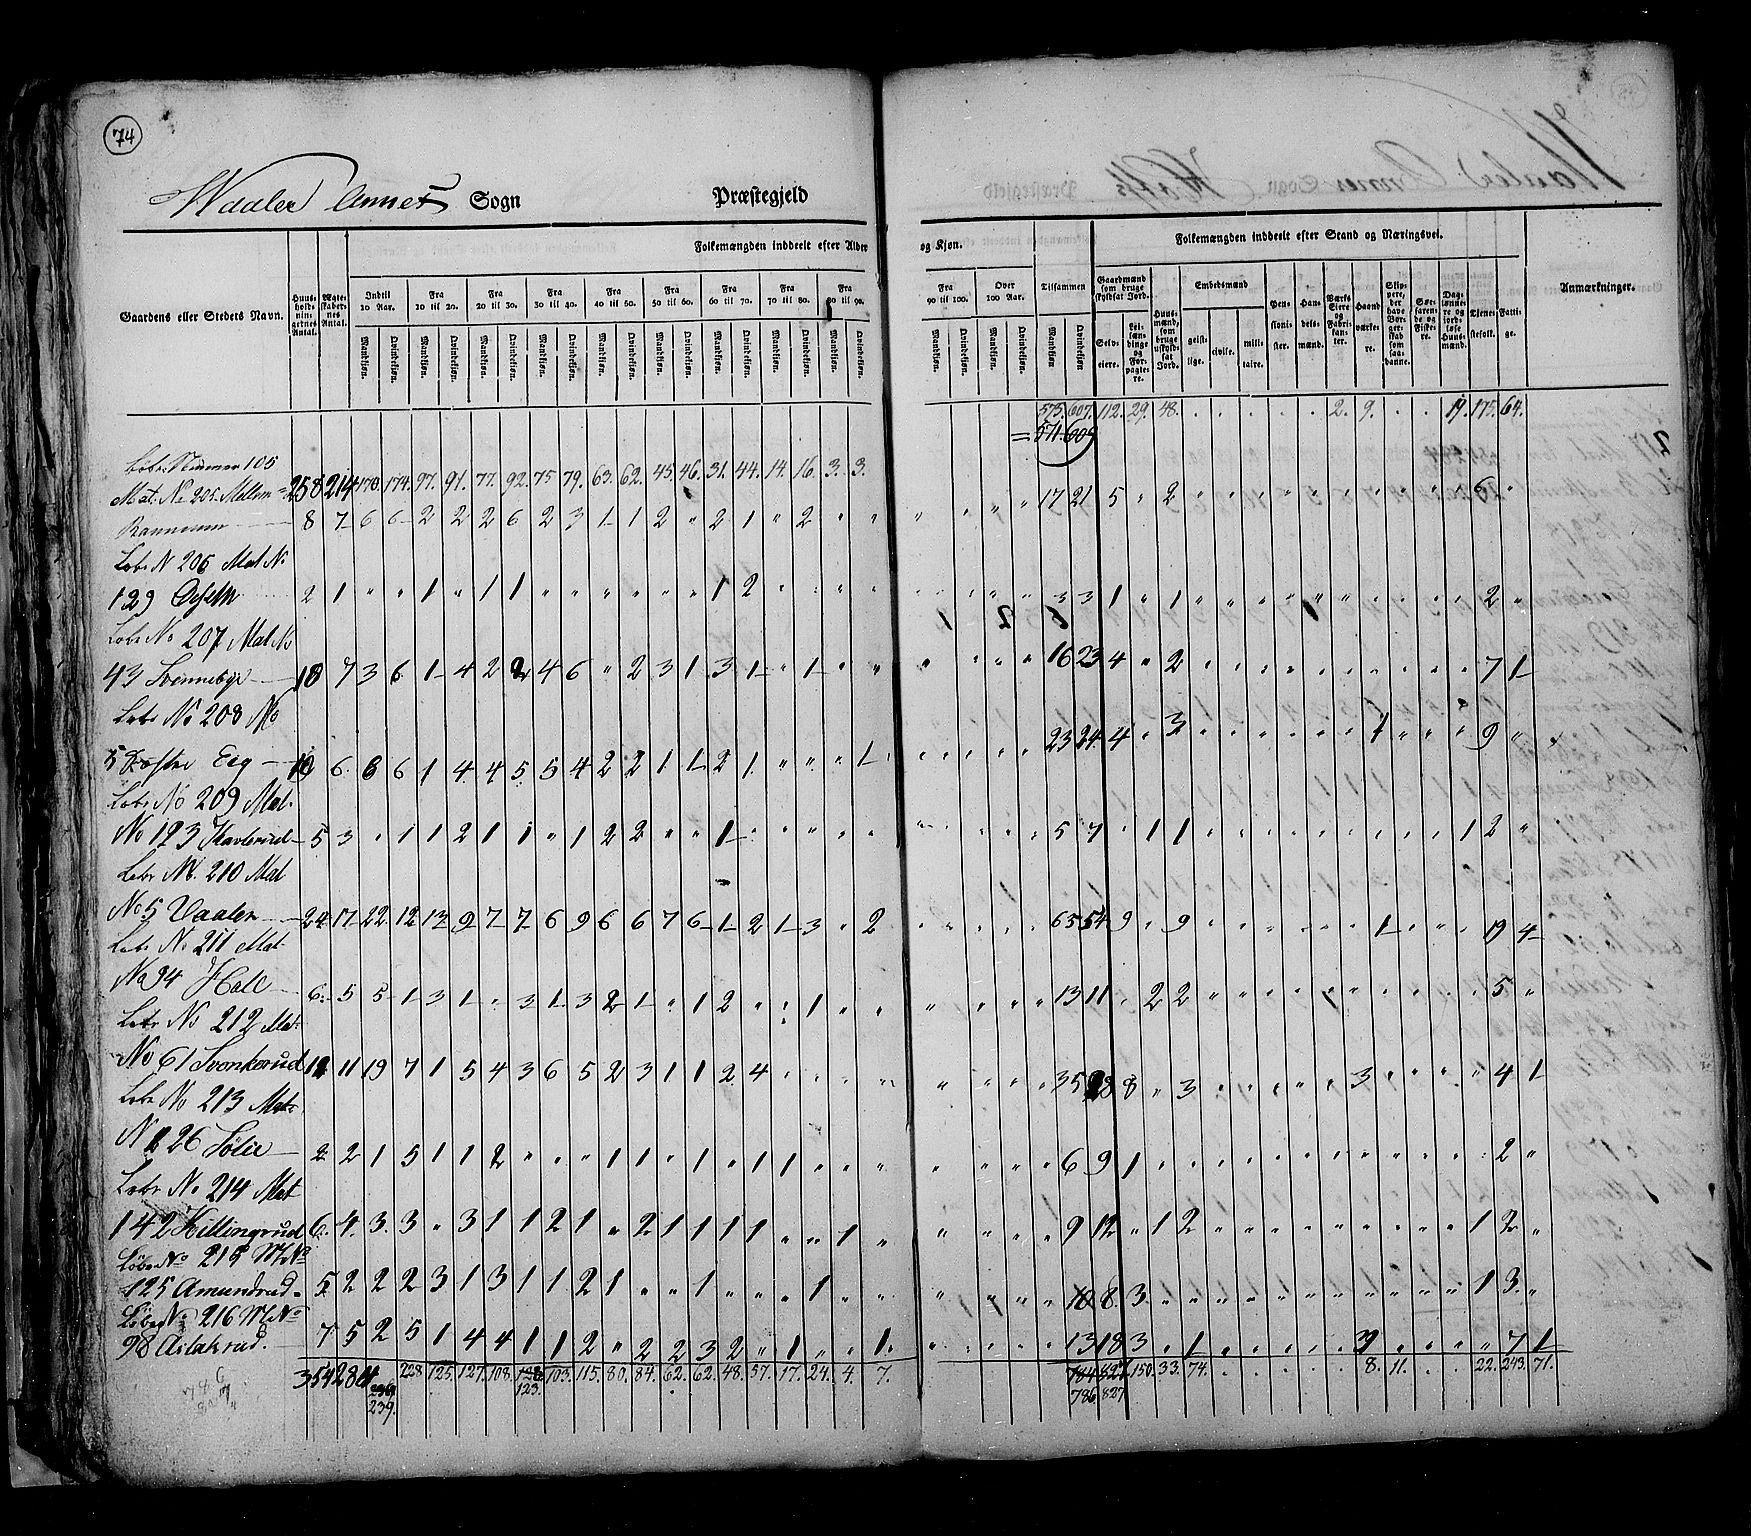 74
Waaler Annex Sogn Præstegjeld
Folkemængden inddeelt efter Alder og Kjøn.
Folkemængden inddeelt efter Stand og Næringsvei.
Gaardens eller Stedets Navn.
Huusholdningernes Antal.
Ægteskabernes Antal.
Indtil 10 Aar.
Fra 10 til 20.
Fra 20 til 30.
Fra 30 til 40.
Fra 40 til 50.
Fra 50 til 60.
Fra 60 til 70.
Fra 70 til 80.
Fra 80 til 90.
Fra 90 til 100.
Over 100 Aar.
Tilsammen
Mandkjøn. Qvindekjøn.
Gaardmænd som bruge skyldsat Jord.
Selveiere.
Leilændinge og Forpagtere.
Huusmænd, som bruge uskyldsat Jord.
Embedsmænd
geistlige. civile. militaire.
Pensionister.
Handelsmænd.
Værks Eiere og Fabrikanter.
Haandværkere.
Skippere, der have Borgerskab som saadanne.
Søefarende og Fiskere.
Daglønnere og jordløse Huusmænd.
Tjenestefolk.
Fattige.
Anmærkninger.
575. 607. 112. 29. 48. . . . . . . 2. 9. . . 19. 175. 64.
= 571. 609
Løbe Nummer 105
Mat. No 205. Mellem 258 214 170. 174. 97. 91. 77. 92. 75 79. 63. 62. 45. 46. 31. 44. 14. 16. 3. 3.
Rannum 8 7 6 6 2 2 2 6 2 3 1 1 2 " 2 1 " 2 " " " " " " 17 21 5 " 2 " " " " " " " " " " 6 "
Løbe N 206 Mat No
129 2 1 " " 1 " 1 1 " " " " " " 1 2 " " " " " " " " 3 3 1 " 1 " " " " " " " " " " 2 "
Løbe No 207 Mat No
43 Svennebye 10 7 3 6 1 4 2 2 4 6 " 2 3 1 3 1 " 1 " " " " " " 16 23 4 " 2 " " " " " " " " " " 7 1
Løbe No 208 No
5 Østre Eeg 10 6. 6 6 1 4 4 5 5 4 2 2 1 1 2 1. " " " 1 " " " " 23 24. 4 " 3 " " " " " " 1 " " " 9 "
Løbe No 209 Mat.
No 123 Haverud 5 3 " 1 1 2 1 1 " 1 2 2 " " 1 " " " " " " " " " 5 7 " 1 1 " " " " " " " " " 1 2 "
Løbe No. 210 Mat
No 5 Vaaler 24 17 22 12 13 9 7 7 6 9 6 6 7 6 1 2 1 3 " 2 " " " " 65 54 9 " 9 " " " " " " 1 " " " 19 4
Løbe No 211 Mat
No 94 Holl 6 5 5 1 3 1 " 3 1 3 2 1 " 1 2 " " 1 " " " " " " 13 11 " 2 2 " " " " " " " " " " 5 "
Løbe No 212 Mat
No 61 Svenkerud 12 11 19 7 1 5 4 3 6 5 2 3 1 1 2 4 " " " " " " " " 35 28 8 " 3 " " " " " " 3 " " " 4 1
Løbe No 213 Mat
No 126 Sølie 2 2 1 5 1 1 2 " " " 1 1 " 1 " 1 1 " " " " " " " 6 9 1 " " " " " " " " " " " " 2 "
Løbe No 214 Mat
142 Killingrud 6 4. 3. 3 " 3 1 1 2 1 " 2 1 1 1 1 " " 1 " " " " " 9 12 " 1 2 " " " " " " " " " 1 2 "
Løbe No 215 M. No
125 Amundrud 5 2 2 2 3 1 3 1 1 2 1 " " 1 " " " 1 " " " " " " 10 8 3 " " " " " " " " " " " 1 3 "
Løbe No 216 M. No
98 Aslakrud. 7 5 2 5 1 4 4 1 1 2 " 2 2 3 2 " 1 " " 1. " " " " 13 18 3 " 1 " " " " " " 3 " " " 7 1
354 286 228 125. 127. 108. 128 103. 115. 80. 84. 62. 62. 48. 57. 17. 24. 4. 7. 784 827 150. 33. 74. 8. 11. 22. 243. 71.
239. 123. 786 827